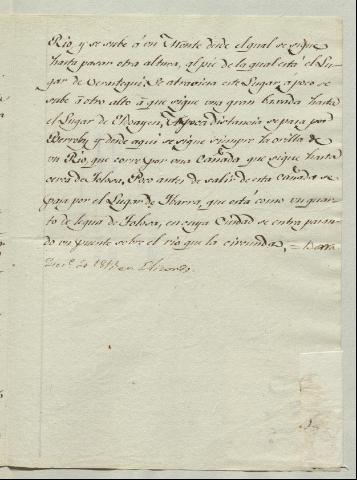 Rio, y se sube á un Monte desde el qual se sigue
hasta pasar otra altura, al pie de la qual está el Lu-
gar de Verastegui. Se atraviesa este Lugar, á poco se
sube á otro alto á que sigue una gran baxada hasta
el Lugar de A poca distancia se pasa por
Berroby y desde aqui se sigue siempre la orilla de
un Rio, que corre por una Cañada que sigue hasta
cerca de Tolosa, Poco antes de salir de esta Cañada se
pasa por el Lugar de Ibarra, que está como un quar-
to de legua de Tolosa, en cuya Ciudad se entra pasan-
do un puente sobre el rio que la circunda, =
en Elizondo.